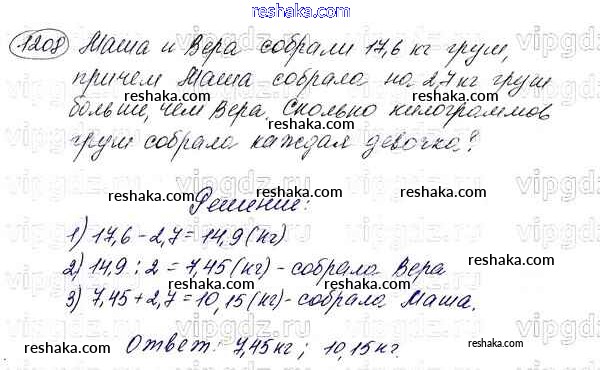 reshaka.com
1208 Маша и Вера собрали 17,6 кг груш,
причем Маша собрала на 2,7 кг груш
больше, чем Вера. Сколько килограммов
груш собрала каждая девочка?
reshaka.com reshaka.com reshaka.com
Решение:
reshaka.com
1) 17,6 - 2,7 = 14,9 (кг)
reshaka.com reshaka.com
2) 14,9 : 2 = 7,45 (кг) - собрала Вера
3) 7,45 + 2,7 = 10,15 (кг) - собрала Маша.
reshaka.com reshaka.com reshaka.com
Ответ: 7,45 кг; 10,15 кг.
reshaka.com